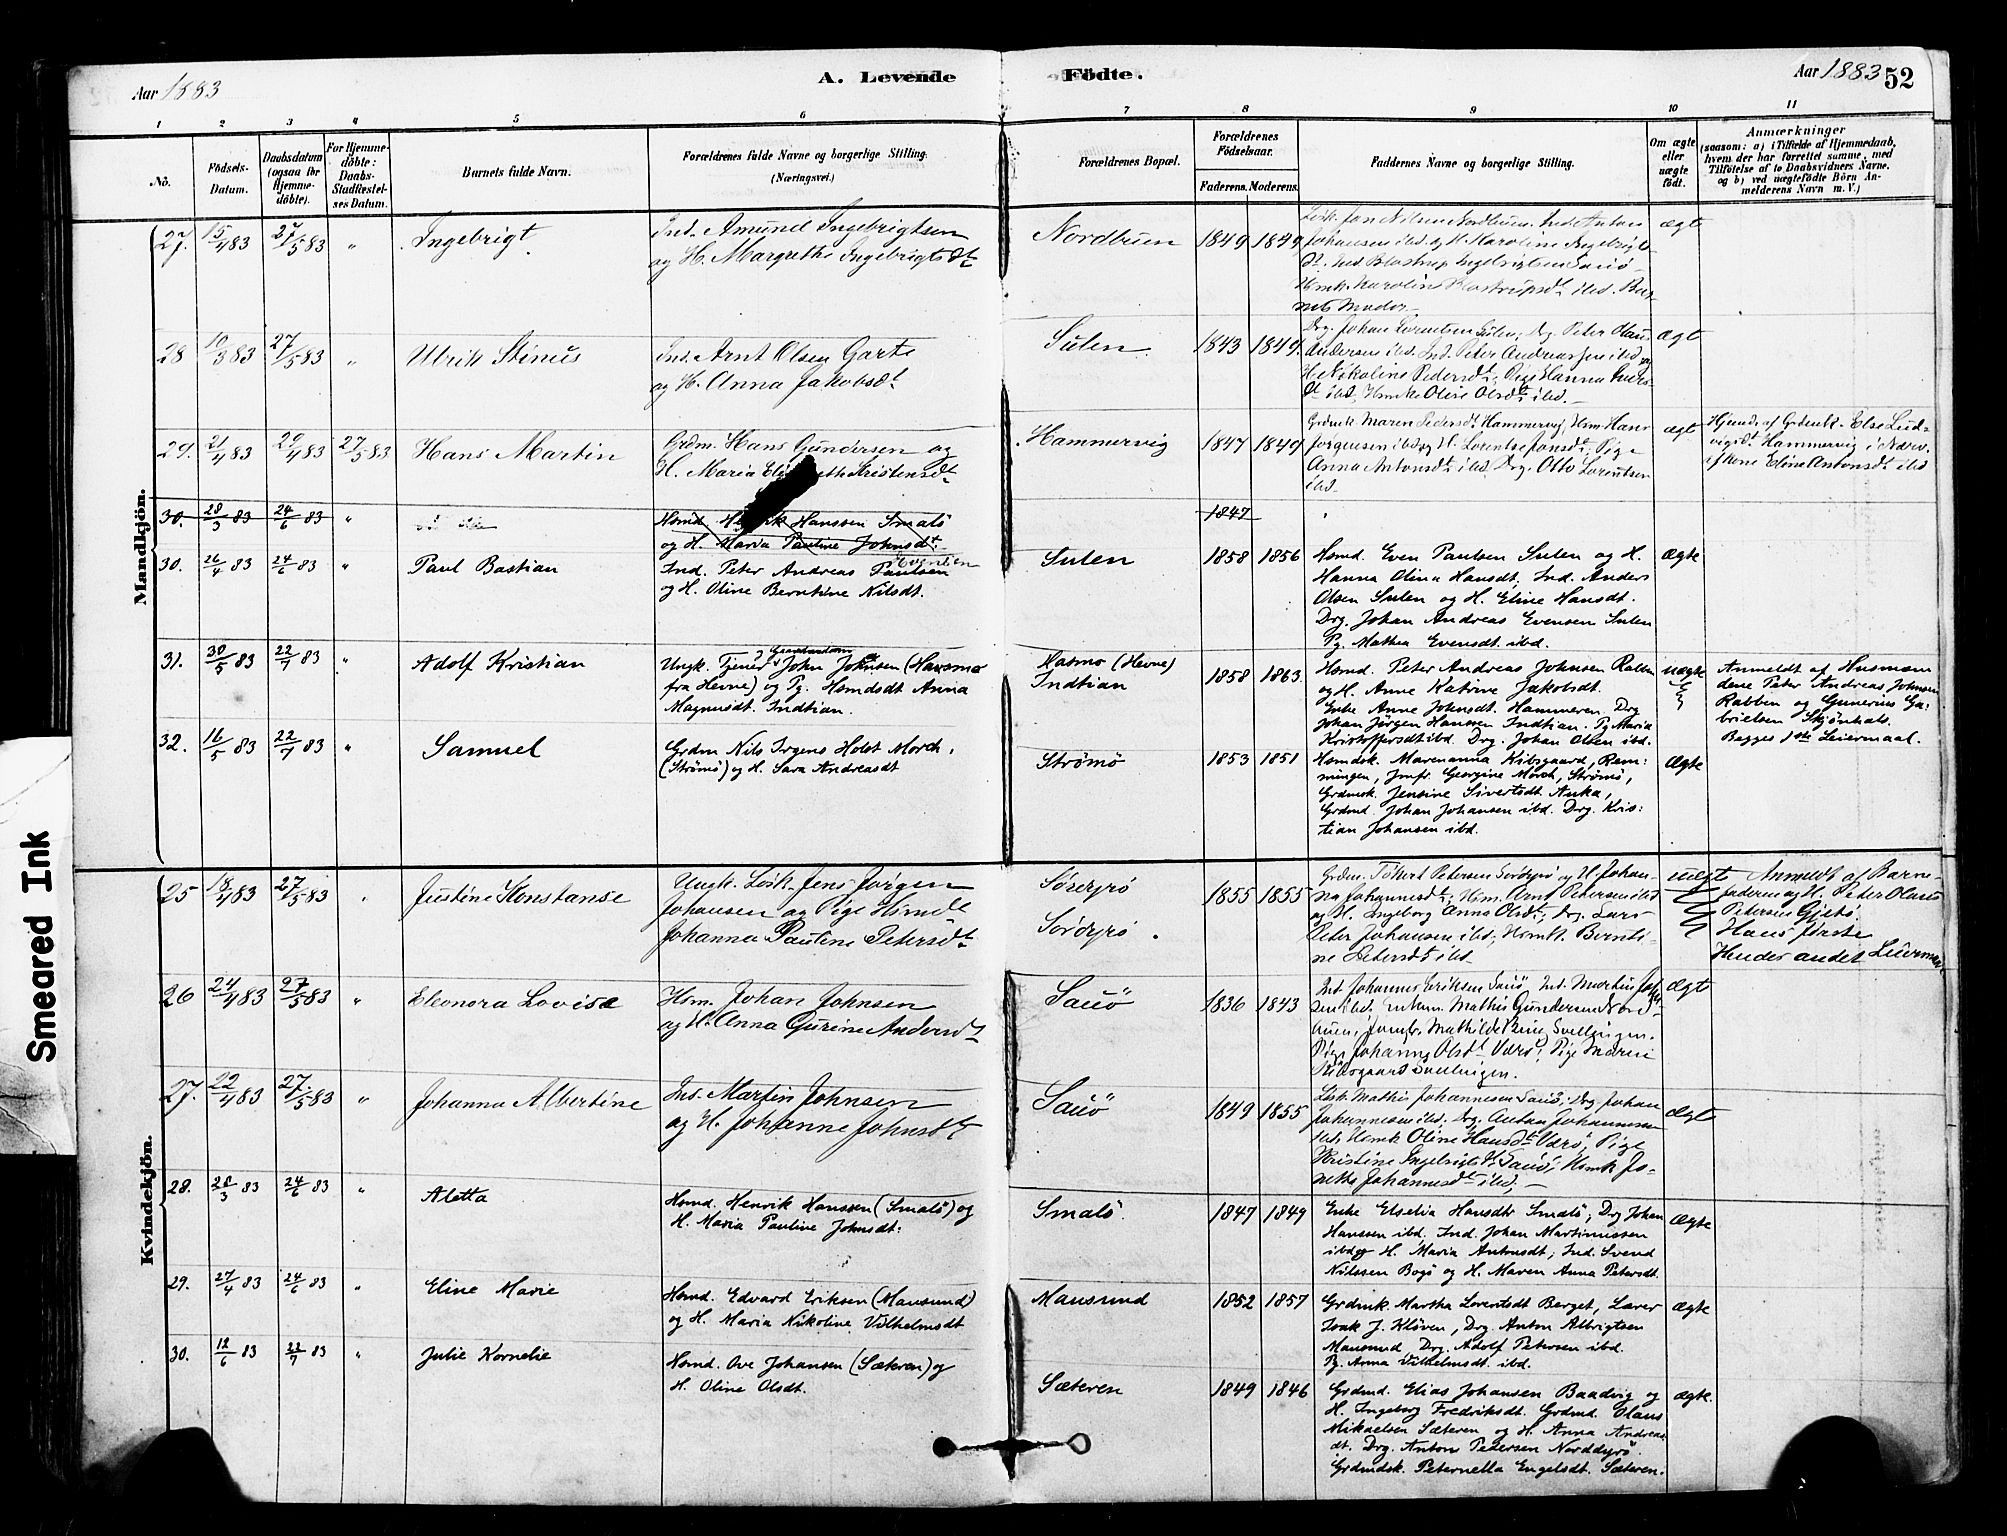 Aar 1883
A. Levende
Födte.
Aar 1883
52
1 2 3 4 5 6 7 8 9 10 11
No.
Födsels-
Datum.
Daabsdatum
(ogsaa for
Hjemme-
döbte).
For Hjemme-
döbte:
Daabs-
Stadfæstel-
ses Datum.
Barnets fulde Navn.
Forældrenes fulde Navne og borgerlige Stilling.
(Næringsvei.)
Forældrenes Bopæl.
Forældrenes
Födselsaar.
Faderens. Moderens.
Faddernes Navne og borgerlige Stilling.
Om ægte
eller
uægte
födt.
Anmærkninger
(saasom: a) i Tilfælde af Hjemmedaab,
hvem der har forrettet samme, med
Tilföielse af to Daabsvidners Navne.
og b) ved uægtefödte Börn An-
melderens Navn m. V.)
Mandkjön.
27. 15/4 83 27/5 83 " Ingebrigt
Ind. Amund Ingebrigtsen
og H. Margrethe Ingebrigtsdt
Nordbuen 1849 1849
Losk. Jon Nilsen Nordbuen. Ind. Anton
Johansen ibd. og H. Karoline Ingebrigts-
dt. Ind. Blastrup Ingebrigtsen Sauö
Hsmk. Karoline Blastrupsdt ibd. Bar-
nets Moder
ægt
28 10/3 83 27/5 83 " Ulrik Stinus
Ind. Arnt Olsen Garte
og H. Anna Jakobsdt
Sulen 1843 1849.
Drg. Johan Lorentsen Sulen; Drg. Peter Olaus
Andersen ibd. Ind. Peter Andreassen ibd og
H. Nikoline Pedersdt; Pige Hanna
ibd, Hsmk Oline Olsdt ibd.
ægt
29. 21/4 83 29/4 83 27/5 83 Hans Martin
Grdm. Hans Gundersen og
H. Maria Kristensdt
Hammervig 1847 1849
Grdmk Maren Pedersdt Hammervig, Hsm. Hans
Jörgensen ibd og H. Lorentse Jonsdt. Pige
Anna Antonsdt ibd. Drg. Otto Lorentsen
ibd.
ægt
Hjmd. af Grdmk. Else Lud-
vigsdt Hammervig i Nærv.
af Kone Eline Antonsdt ibd
30. 28/3 83 24/6 83 "
Hsmd. Henrik Hanssen Smalö
og H. Maria Pauline Johnsdt.
1847
30. 26/4 83 24/6 83 " Paul Bastian
Evensen
Ind. Peter Andreas Paulsen
og H. Oline Berntine Nilsdt.
Sulen 1858 1856
Hsmd. Even Paulsen Sulen og H.
Hanna Olina Hansdt, Ind. Anders
Olsen Sulen og H. Eline Hansdt.
Drg. Johan Andreas Evensen Sulen
Pg. Mathea Evensdt. ibd.
Ægte
31. 30/5 83 22/7 83 " Adolf Kristian
Ungk. Tjener John Johnsen (Hasmo
fra Hevne) og Pg. Hsmdsdt Anna
Magnusdt. Indtian.
Hasmo (Hevne)
Indtian
1858 1863
Hsmd. Peter Andreas Johnsen Rabben
og H. Anne Katrine Jakobsdt.
Enke Anne Johnsdt. Hammeren. Drg
Johan Jörgen Hanssen Indtian. Pg Maria
Kristoffersdt ibd. Drg. Johan Olsen ibd.
uægte
Anmeldt af Husmæn-
dene Peter Andreas Johnsen
Rabben og Gunerius Ga-
brielsen Skjönhals.
Begges 1ste Leiermaal.
32. 16/5 83 22/7 83 " Samuel
Grdm Nils Irgens Holst Morch.
(Strömö) og H. Sara Andreasdt
Strömö 1853 1851
Hsmdsk. Marenanna Kibsgaard, Ram-
mingen, Jmfr. Georgine Morch, Strömö,
Grdmsk. Jensine Sivertsdt. Auka,
Grdmd. Johan Johansen ibd. Drg. Kris-
tian Johansen ibd.
Ægte
Kvindekjön.
25 18/4 83 27/5 83 " Justine Konstanse
Ungk. Losk. Jens Jörgen
Johansen og Pige Hsmdt
Johanna Pauline Petersdt.
Sördyrö
Sördyrö.
1855 1855
Grdm. Petersen Sördyrö og H. Johan-
na Johannesdt; Hsm. Arnt Petersen ibd
og H. Ingeborg Anna Olsdt; Drg. Lars
Peter Johansen ibd; Hsmk. Bernti-
ne Petersdt ibd
uægt
Anmeldt af Barne-
faderen og H. Peter Olaus
Petersen Gjesö.
Hans förste
Hendes andet Leierm.
26 24/4 83 27/5 83 " Eleonora Lovise
Hsm. Johan Johnsen
og H. Anna Gurine Andersdt
Sauö 1836 1843
Ind. Johannes Eriksen Sauö Ind. Martin
ibd. Mathis Gundersen
Jomfr. Mathilde Svellingen.
Pige Johanna Olsdt Værö, Pige Marie
Kibsgaard Svellingen.
Ægt
27. 22/4 83 27/5 83 " Johanna Albertine
Ind. Martin Johnsen
og H. Johanne Johnsdt
Sauö 1849 1855
Losk. Mathis Johannesen Sauö; Drg Johan
Johannesen ibd. Drg. Anton Johannessen
ibd, Hsmk Oline Hansdt Værö; Pige
Kristine Ingebrigtsdt Sauö; Hsmk Jo-
netha Johannesdt ibd,
Ægt
28. 28/3 83 24/6 83 " Aletta
Hsmd. Henrik Hanssen (Smalö) og
H. Maria Pauline Johnsdt.
Smalö. 1847 1849
Enke Elselia Hansdtr Smalö, Drg Johan
Hanssen ibd, Ind. Johan Martinussen
ibd og H. Maria Antonsdt, Ind. Svend
Nilssen Bogö og H. Maren Anna Petersdt.
Ægte
29. 27/4 83 24/6 83 " Eline Marie
Hsmd. Edvard Eriksen (Mausund)
og H. Maria Nikoline Vilhelmsdt
Mausund 1852 1857
Grdmk. Martha Lorentsdt Berget, Lærer
Isak J. Klöven, Drg. Anton Albrigtsen
Mausund, Drg. Adolf Petersen ibd.
Pg. Anna Vilhelmsdt ibd.
Ægte
30. 12/6 83 22/7 83 " Julie Kornelie
Hsmd. Ove Johansen (Sæteren) og
H. Oline Olsdt.
Sæteren 1849 1846
Grdmd. Elias Johansen Baadvig og
H. Ingeborg Fredriksdt. Grdmd. Olaus
Mikaelsen Sæteren og H. Anna Andreas-
dt. Drg. Anton Petersen Norddyrö.
Grdmdsk. Peternella Engelsdt. Sæteren.
Ægte.
Smeared Ink